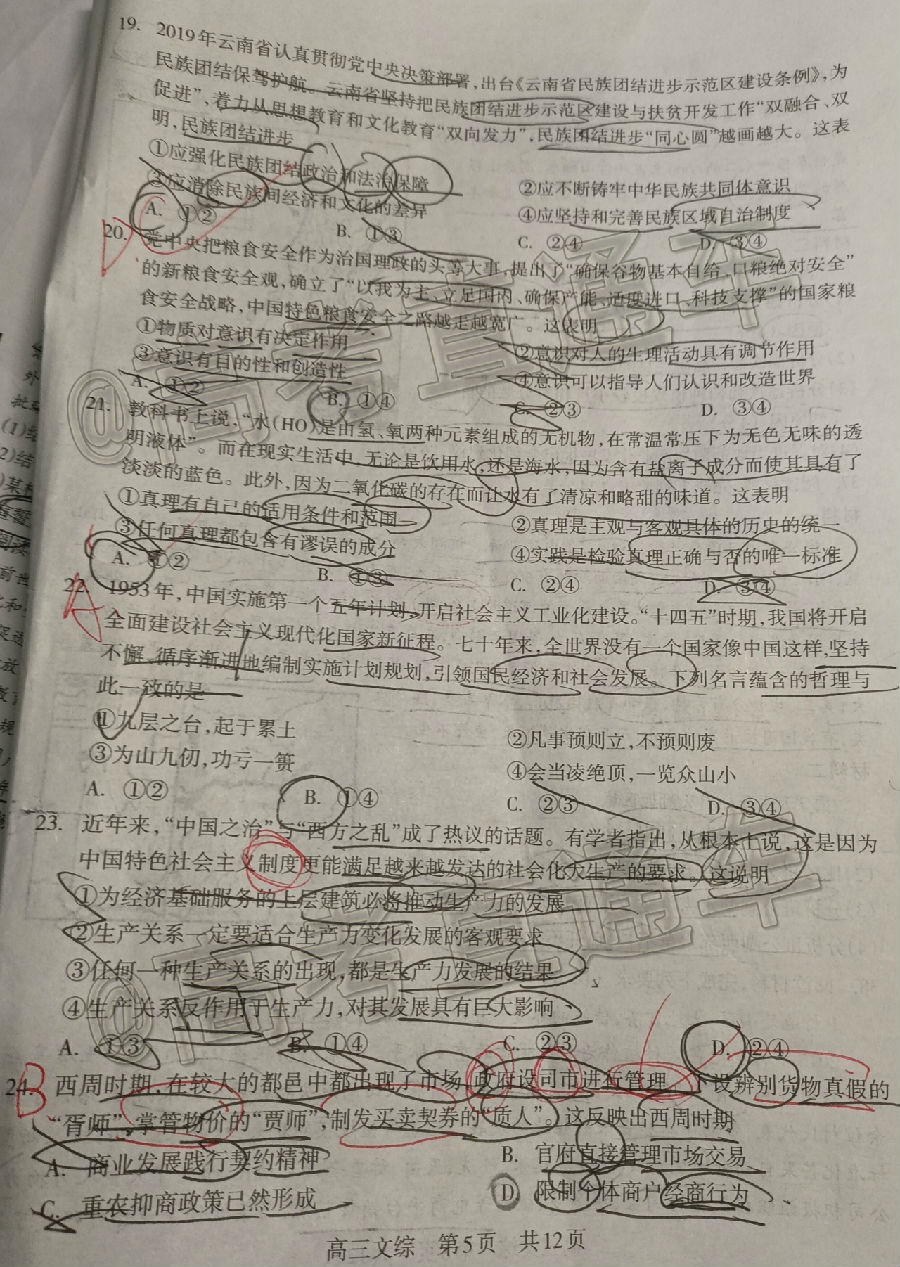 19. 2019年云南省认真贯彻党中央决策部署，出台《云南省民族团结进步示范区建设条例》，为
民族团结保驾护航。云南省坚持把民族团结进步示范区建设与扶贫开发工作“双融合、双
促进”，着力从思想教育和文化教育“双向发力”，民族团结进步“同心圆”越画越大。这表
明，民族团结进步
①应强化民族团结政治和法治保障
②应不断铸牢中华民族共同体意识
③应消除民族间经济和文化的差异
④应坚持和完善民族区域自治制度
A. ①② B. ①③ C. ②④ D. ③④
20. 党中央把粮食安全作为治国理政的头等大事，提出了“确保谷物基本自给、口粮绝对安全”
的新粮食安全观，确立了“以我为主、立足国内、确保产能、适度进口、科技支撑”的国家粮
食安全战略，中国特色粮食安全之路越走越宽广。这表明
①物质对意识有决定作用
②意识对人的生理活动具有调节作用
③意识有目的性和创造性
④意识可以指导人们认识和改造世界
A. ①② B. ①④ C. ②③ D. ③④
21. 教科书上说，“水(HO)是由氢、氧两种元素组成的无机物，在常温常压下为无色无味的透
明液体”。而在现实生活中，无论是饮用水，还是海水，因为含有盐离子成分而使其具有了
淡淡的蓝色。此外，因为二氧化碳的存在而让水有了清凉和略甜的味道。这表明
①真理有自己的适用条件和范围
②真理是主观与客观具体的历史的统一
③任何真理都包含有谬误的成分
④实践是检验真理正确与否的唯一标准
A. ①② B. ①③ C. ②④ D. ③④
22. 1953年，中国实施第一个五年计划，开启社会主义工业化建设。“十四五”时期，我国将开启
全面建设社会主义现代化国家新征程。七十年来，全世界没有一个国家像中国这样，坚持
不懈、循序渐进地编制实施计划规划，引领国民经济和社会发展。下列名言蕴含的哲理与
此一致的是
①九层之台，起于累土
②凡事预则立，不预则废
③为山九仞，功亏一篑
④会当凌绝顶，一览众山小
A. ①② B. ①④ C. ②③ D. ③④
23. 近年来，“中国之治”与“西方之乱”成了热议的话题。有学者指出，从根本上说，这是因为
中国特色社会主义制度更能满足越来越发达的社会化大生产的要求。这说明
①为经济基础服务的上层建筑必将推动生产力的发展
②生产关系一定要适合生产力变化发展的客观要求
③任何一种生产关系的出现，都是生产力发展的结果
④生产关系反作用于生产力，对其发展具有巨大影响
A. ①③ B. ①④ C. ②③ D. ②④
24. 西周时期，在较大的都邑中都出现了市场，政府设司市进行管理，下设辨别货物真假的
“胥师”，掌管物价的“贾师”，制发买卖契券的“质人”。这反映出西周时期
A. 商业发展践行契约精神
B. 官府直接管理市场交易
C. 重农抑商政策已然形成
D. 限制个体商户经商行为
高三文综 第5页 共12页
@高考直通车
@高考直通车